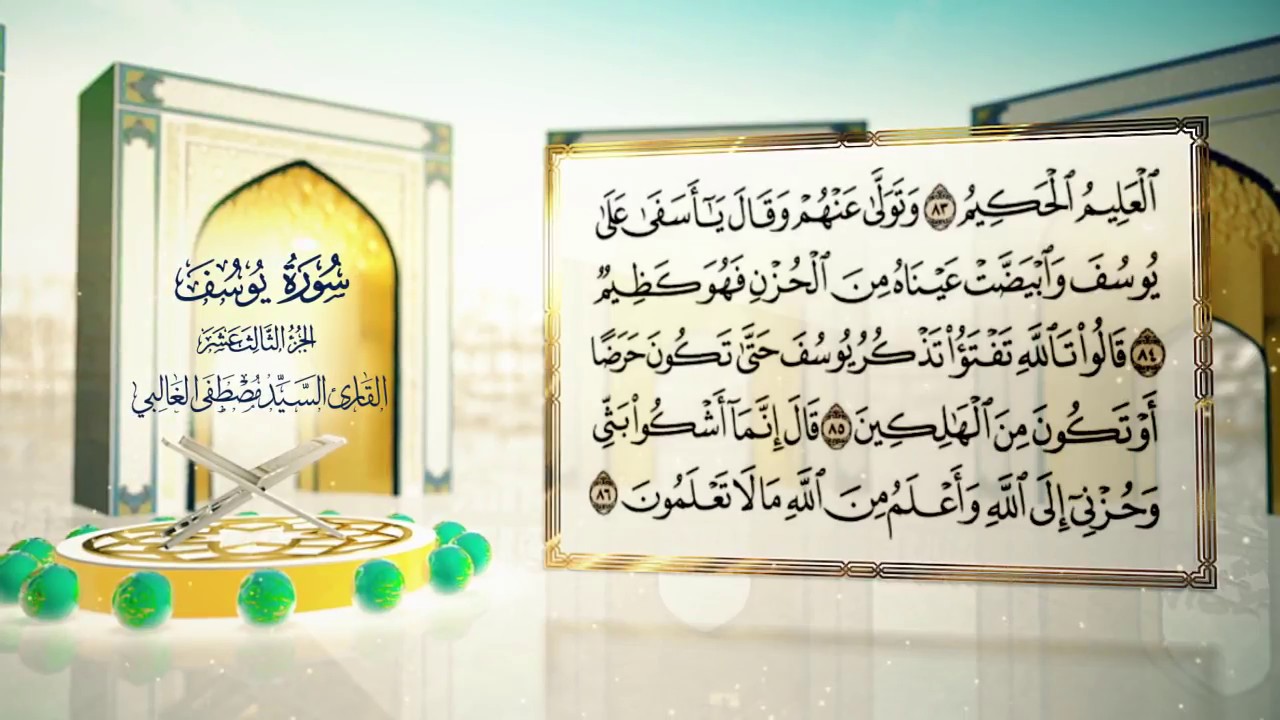 سُورَةُ يُوسُفَ
الجُزءُ الثَّالِثَ عَشَرَ
القَارِئ السَّيِّد مُصْطَفَى الغَالِبِي
ٱلْعَلِيمُ ٱلْحَكِيمُ ٨٣ وَتَوَلَّىٰ عَنْهُمْ وَقَالَ يَـٰٓأَسَفَىٰ عَلَىٰ
يُوسُفَ وَٱبْيَضَّتْ عَيْنَاهُ مِنَ ٱلْحُزْنِ فَهُوَ كَظِيمٌ
٨٤ قَالُوا۟ تَٱللَّهِ تَفْتَؤُا۟ تَذْكُرُ يُوسُفَ حَتَّىٰ تَكُونَ حَرَضًا
أَوْ تَكُونَ مِنَ ٱلْهَالِكِينَ ٨٥ قَالَ إِنَّمَآ أَشْكُوا۟ بَثِّي
وَحُزْنِيٓ إِلَى ٱللَّهِ وَأَعْلَمُ مِنَ ٱللَّهِ مَا لَا تَعْلَمُونَ ٨٦